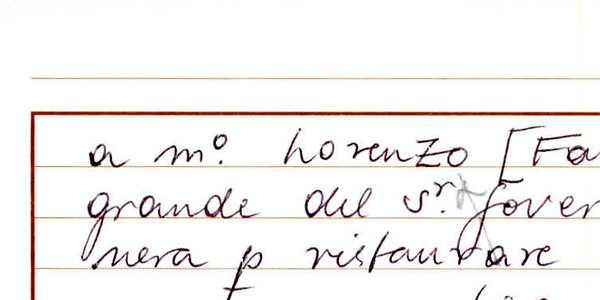 a m.º Lorenzo [Fa
grande del s.r Gover
nera p ristaurare